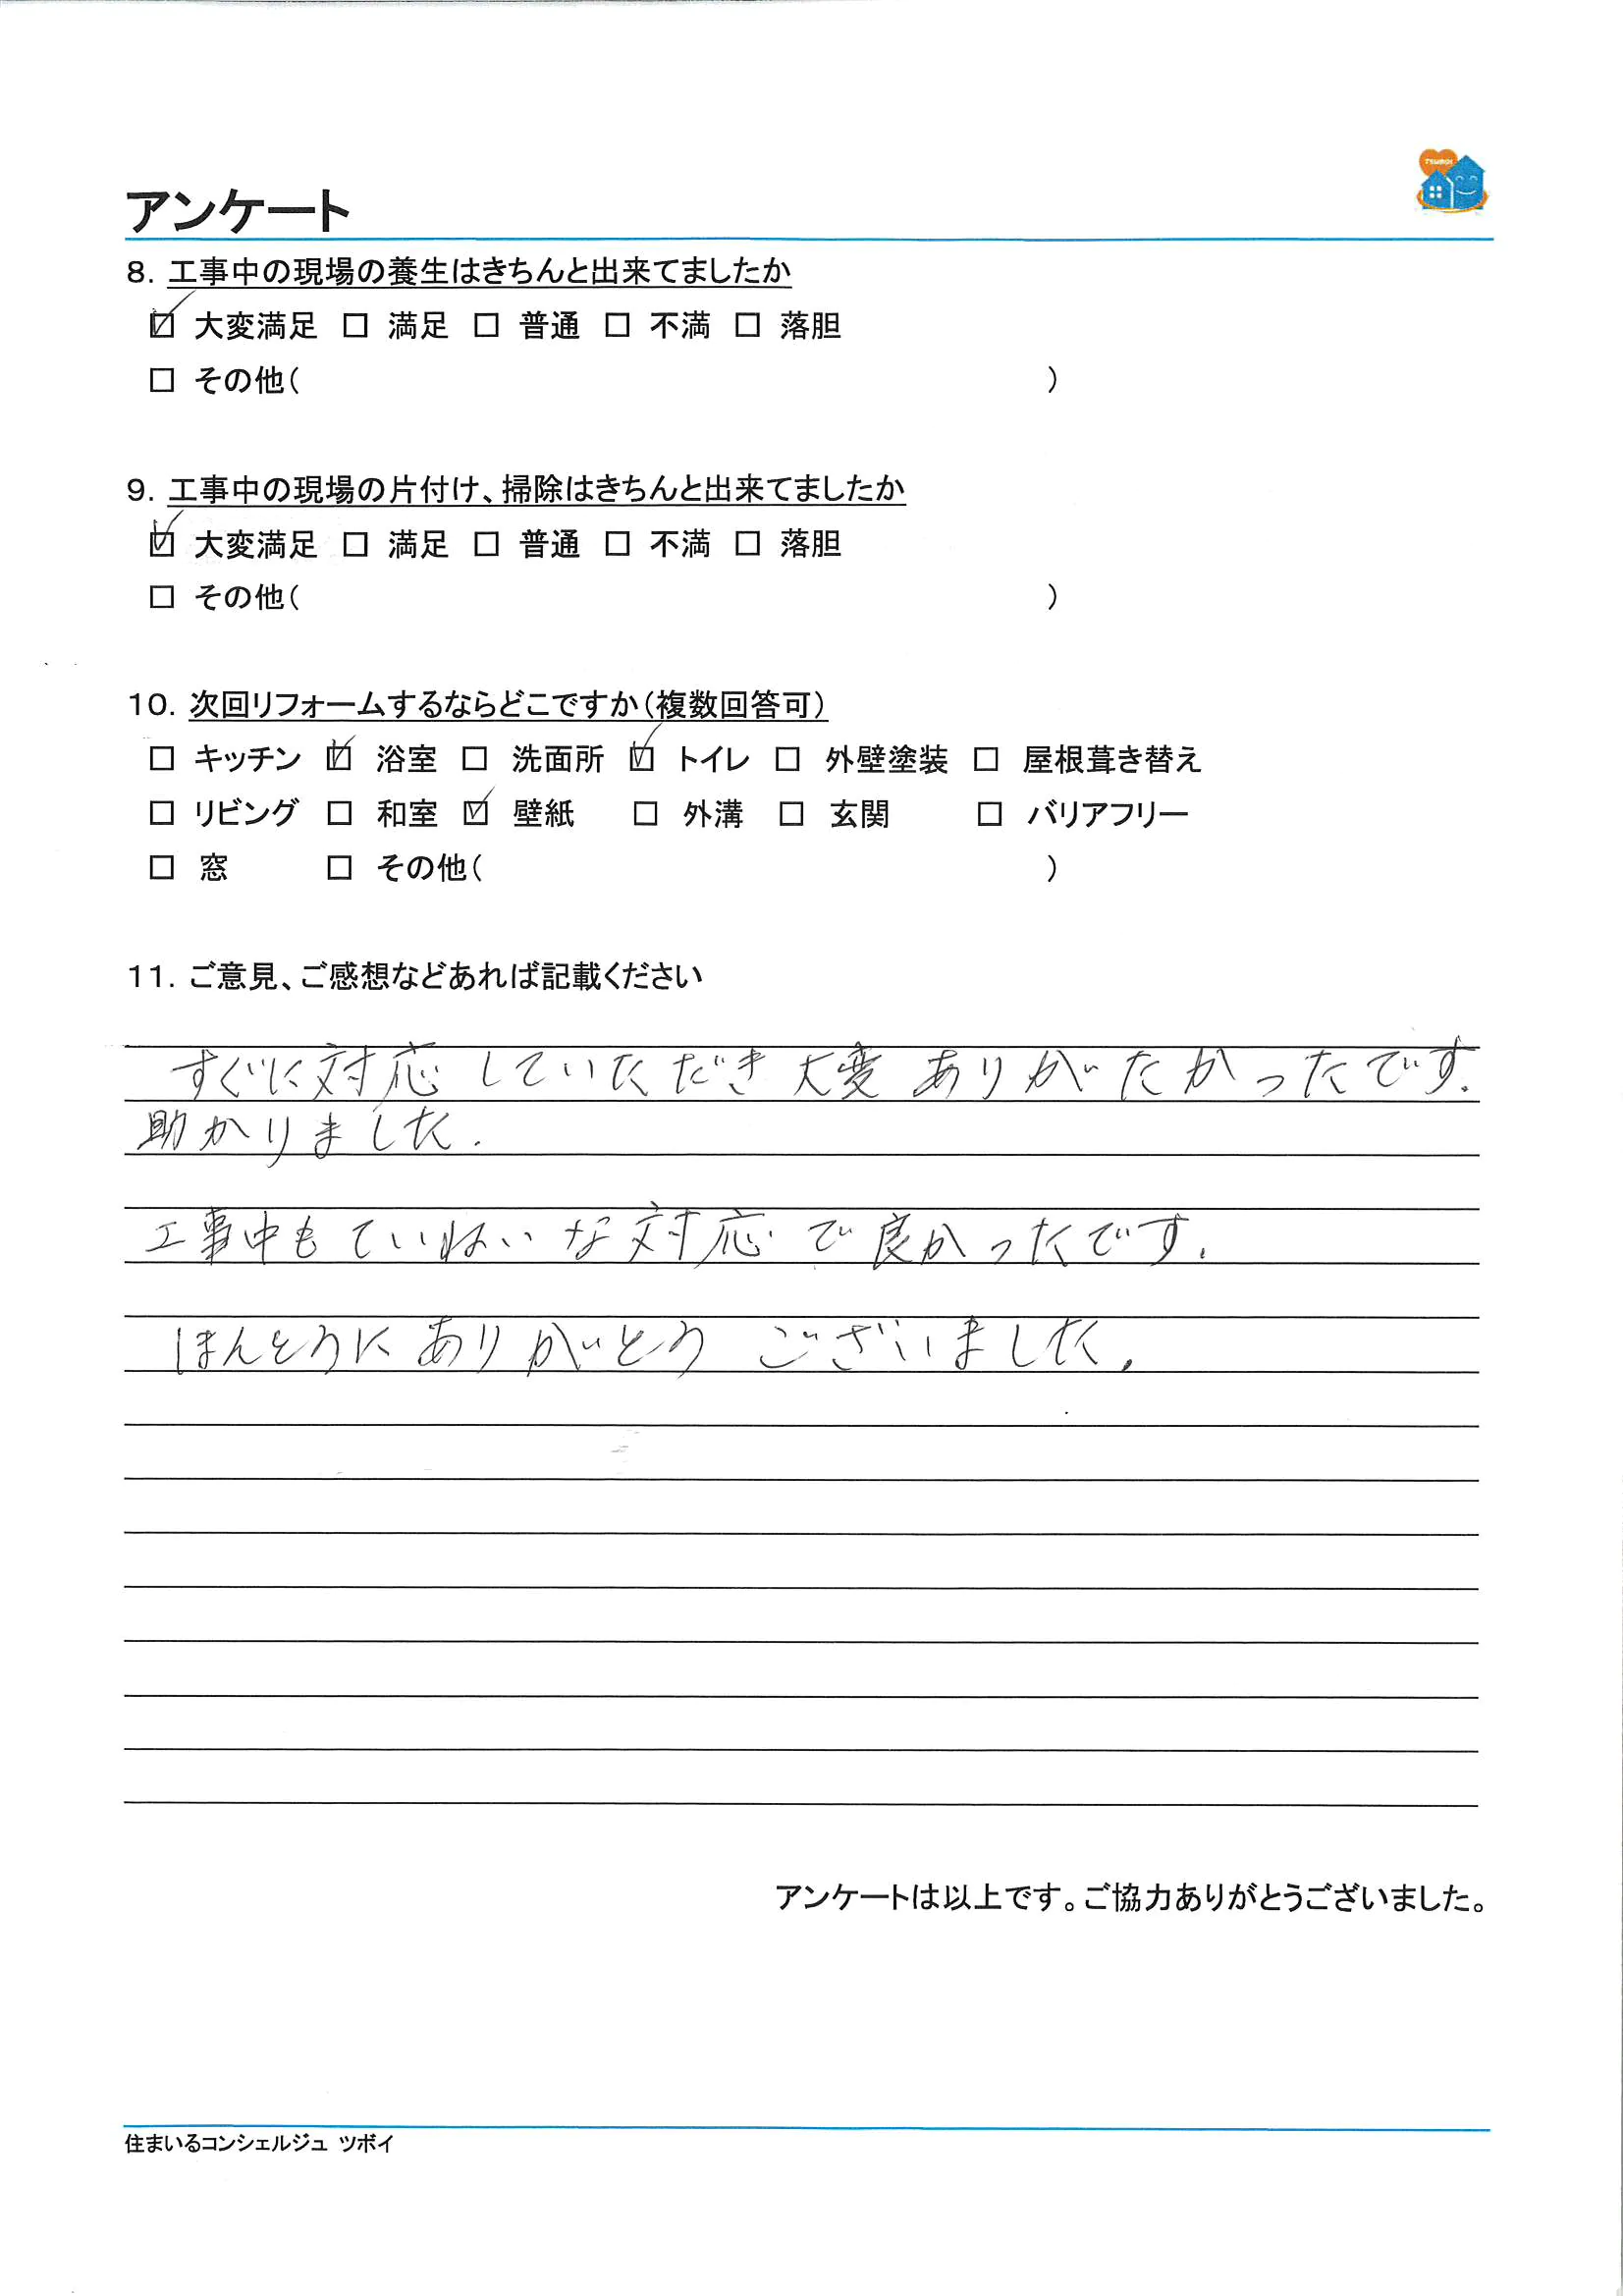 TSUBOI
アンケート
8. 工事中の現場の養生はきちんと出来てましたか
☑ 大変満足 □ 満足 □ 普通 □ 不満 □ 落胆
□ その他( )
9. 工事中の現場の片付け、掃除はきちんと出来てましたか
☑ 大変満足 □ 満足 □ 普通 □ 不満 □ 落胆
□ その他( )
10. 次回リフォームするならどこですか(複数回答可)
□ キッチン ☑ 浴室 □ 洗面所 ☑ トイレ □ 外壁塗装 □ 屋根葺き替え
□ リビング □ 和室 ☑ 壁紙 □ 外溝 □ 玄関 □ バリアフリー
□ 窓 □ その他( )
11. ご意見、ご感想などあれば記載ください
すぐに対応していただき大変ありがたかったです.
助かりました.
工事中もていねいな対応で良かったです.
ほんとうにありがとうございました.
アンケートは以上です。ご協力ありがとうございました。
住まいるコンシェルジュ ツボイ